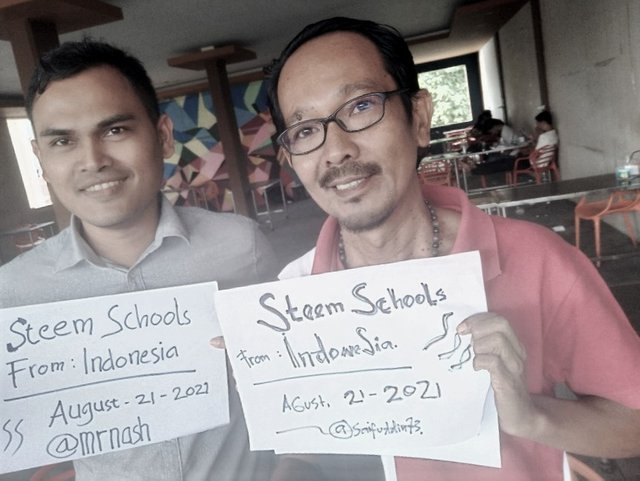 Steem Schools
From: Indonesia
August-21-2021
@mrnash
Steem Schools
From: Indonesia.
Agust. 21-2021